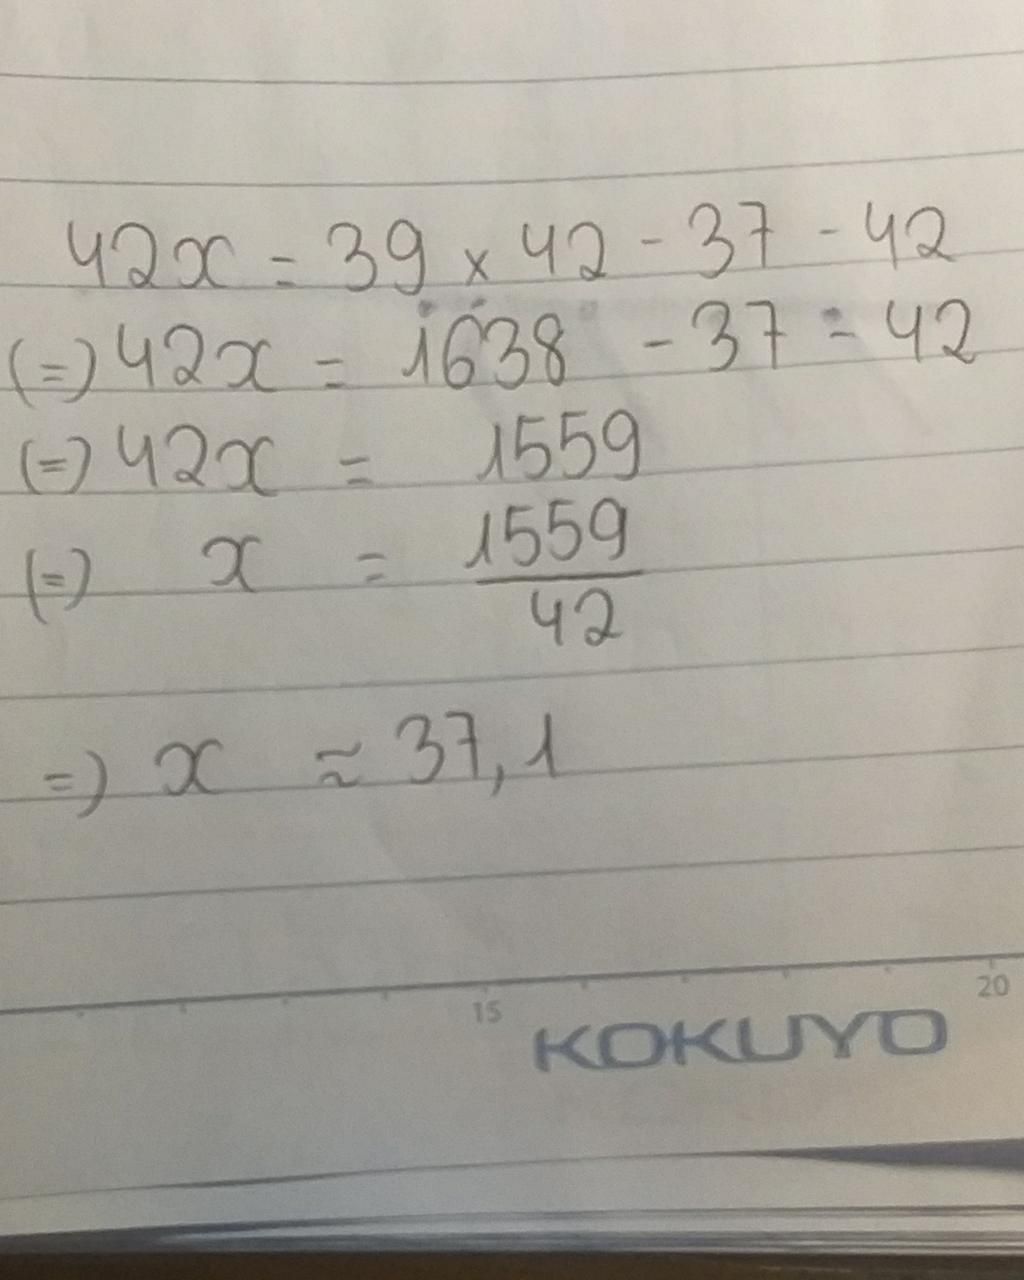 42x = 39 × 42 - 37 - 42
(=) 42x = 1638 - 37 - 42
(=) 42x = 1559
(=) x = 1559/42
=) x ≈ 37,1
15 20
KOKUYO